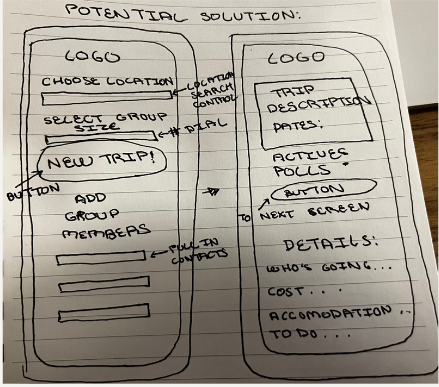 POTENTIAL SOLUTION:
LOGO
CHOOSE LOCATION
LOCATION
SEARCH
CONTROL
SELECT GROUP
SIZE
# DIAL
NEW TRIP!
BUTTON
ADD
GROUP
MEMBERS
PULL IN
CONTACTS
LOGO
TRIP
DESCRIPTION
DATES:
ACTIVES
POLLS
BUTTON
TO
NEXT SCREEN
DETAILS:
WHO'S GOING...
COST...
ACCOMODATION..
TO DO...